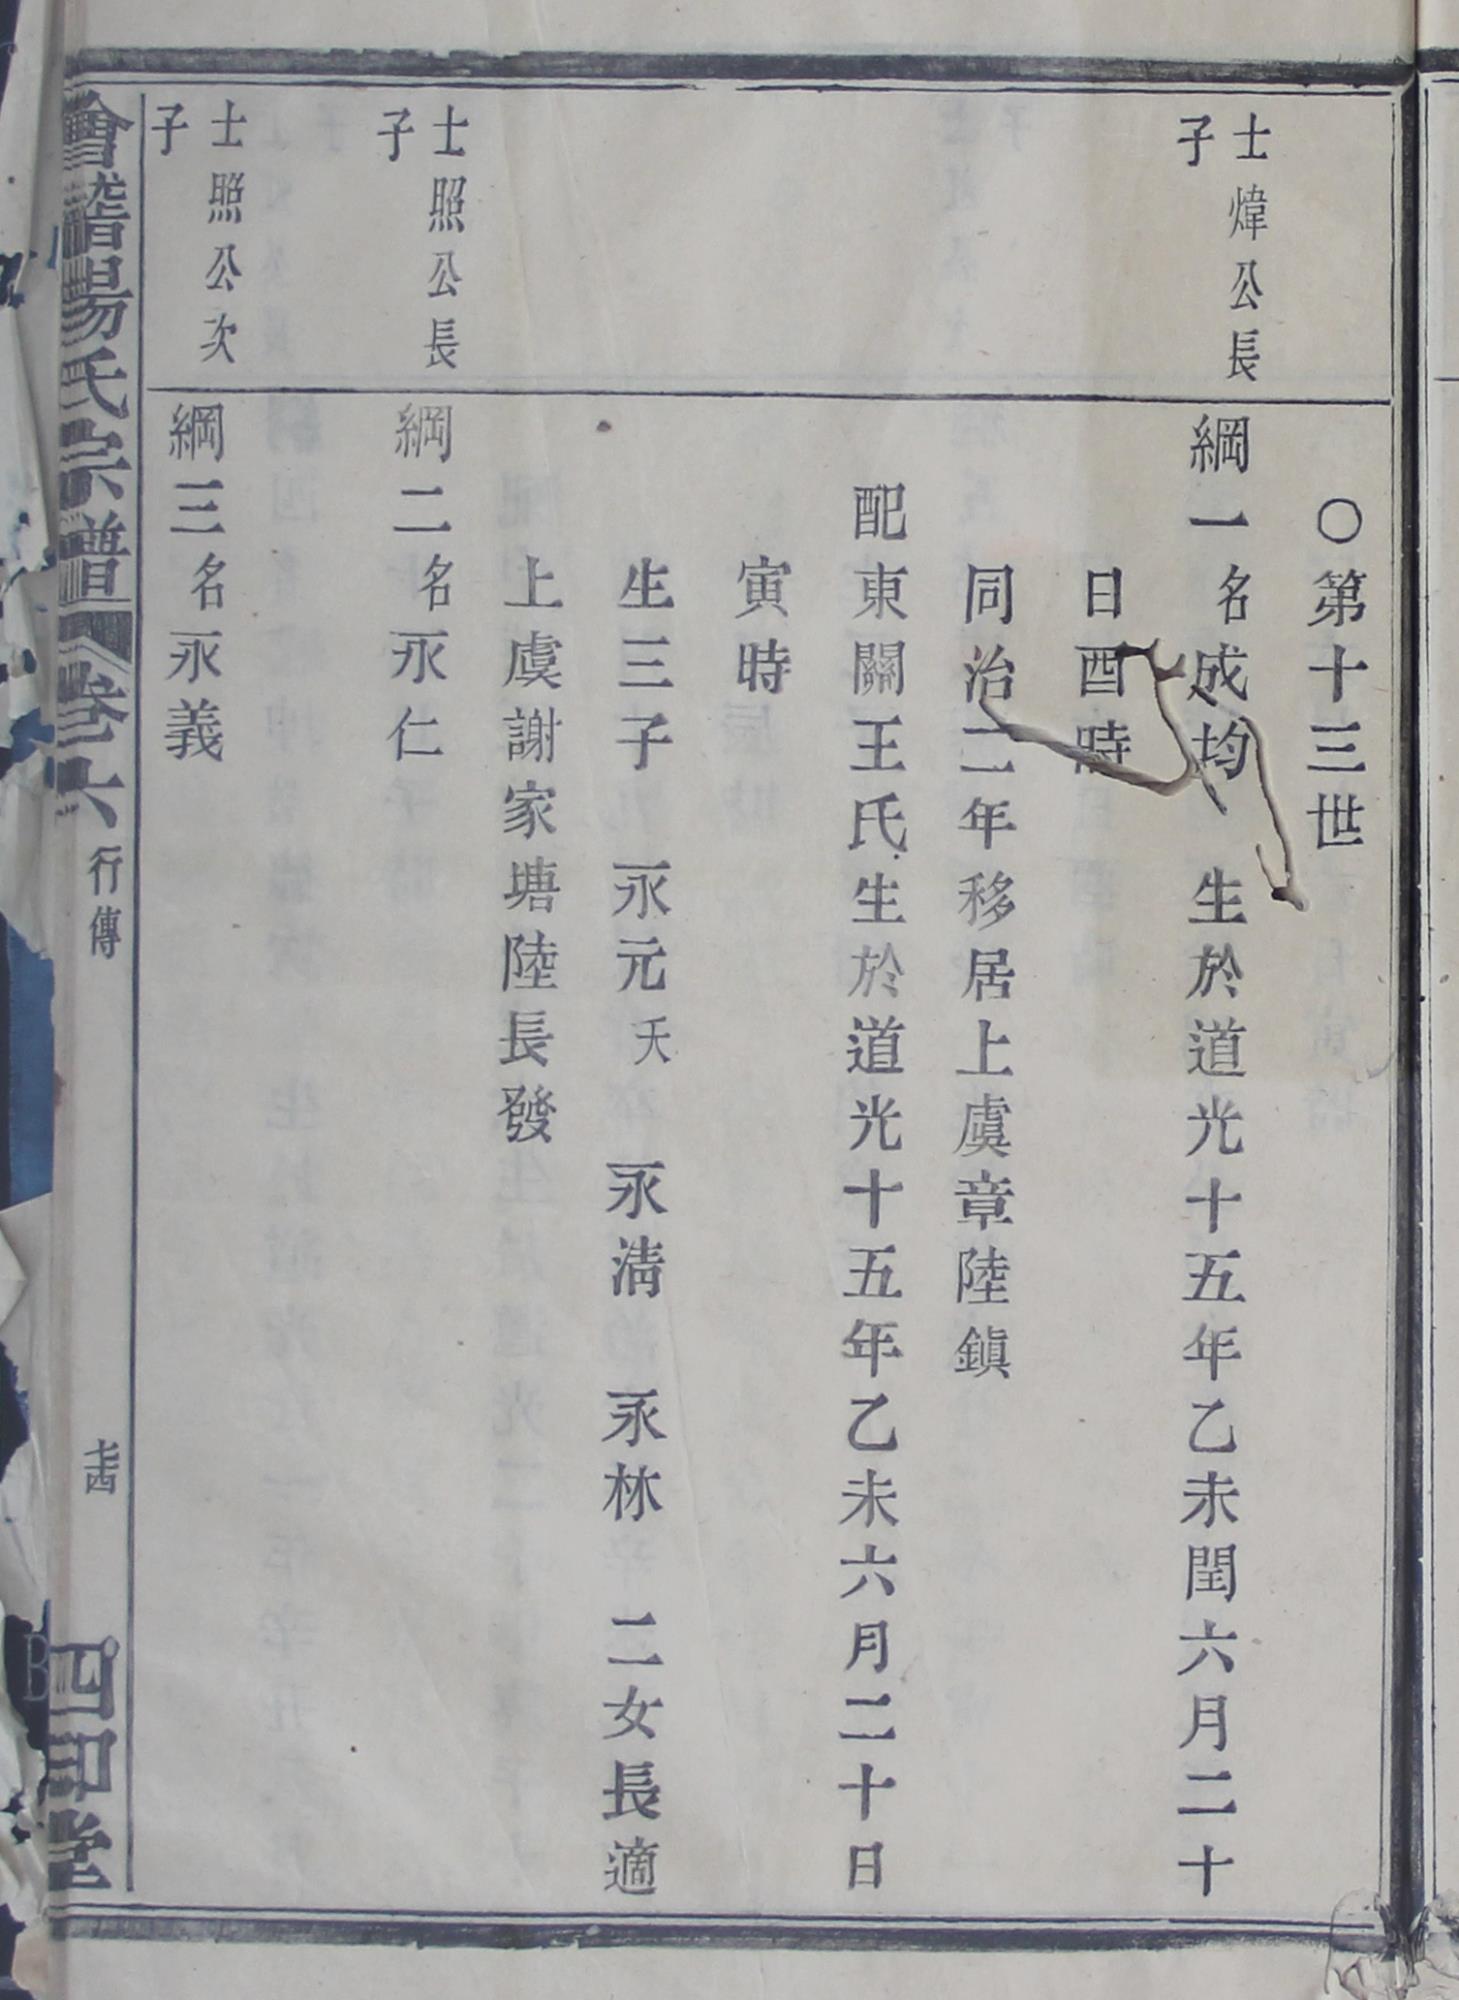 ○第十三世
士煒公長
子
綱一名成均　生於道光十五年乙未閏六月二十
日酉時
同治二年移居上虞章陸鎮
配東關王氏生於道光十五年乙未六月二十日
寅時
生三子　永元夭　永淸　永林　二女長適
上虞謝家塘陸長發
士照公長
子
綱二名永仁
士照公次
子
綱三名永義
會稽楊氏宗譜　卷六　行傳　四印堂